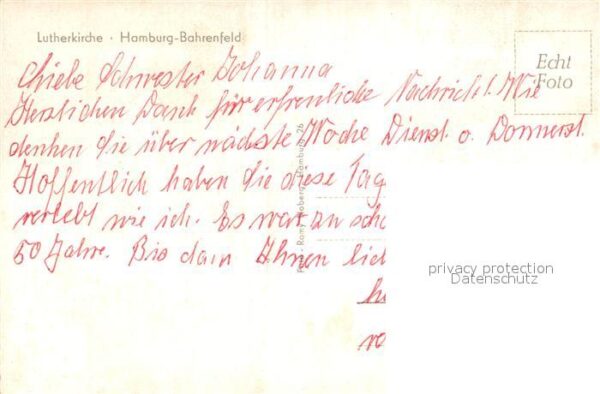 Lutherkirche · Hamburg-Bahrenfeld
Echt
Foto
Liebe Schwester Johanna
Herzlichen Dank für erfreuliche Nachricht! Wie
denken Sie über nächste Woche Dienst. o. Donnerst.
Hoffentlich haben Sie diese Tag
verlebt wie ich. Es war zu schö
50 Jahre. Bis dann Ihnen lie
Hamburg 26
privacy protection
Datenschutz